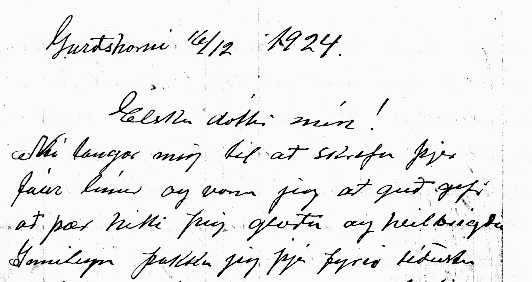 Garðshorni 16/12 1924.
Elsku dóttir mín!
Nú langar mig til at skrifa þjer
fáar línur og vona jeg at guð gefi
at þær hitti þig glaða og heilbrygða
jeg þjer fyrir